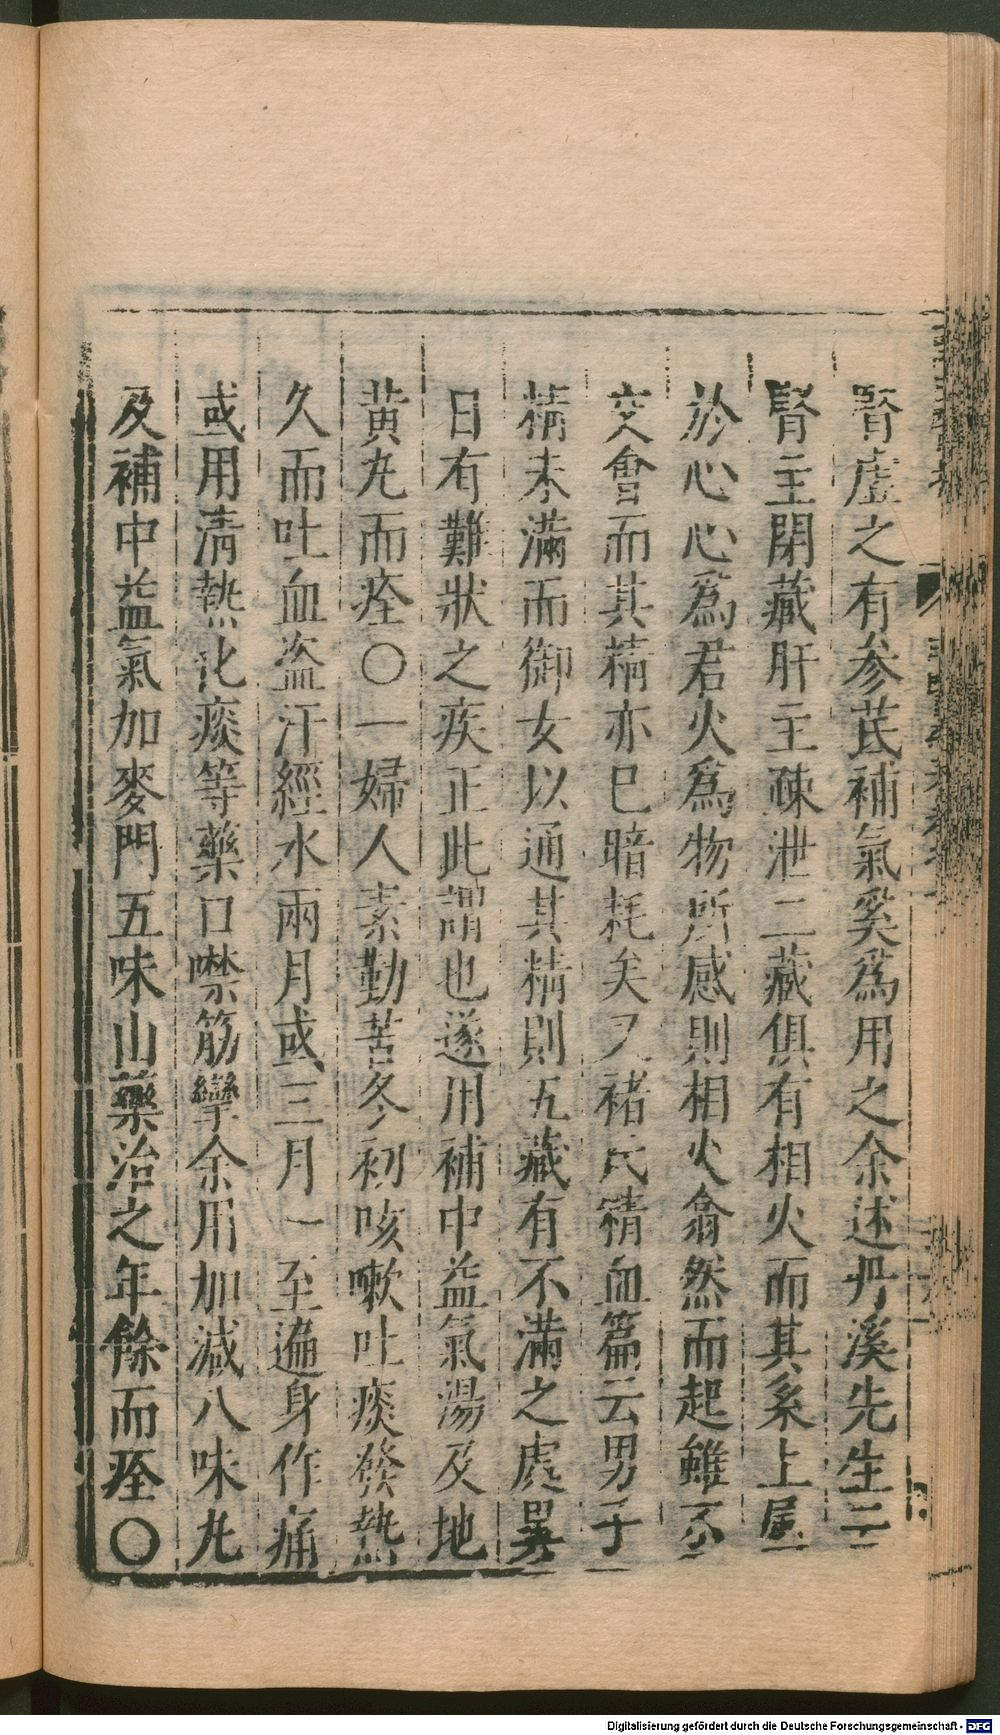 腎虛之有參芪補氣奚爲用之余述丹溪先生云
腎主閉藏肝主疎泄二藏俱有相火而其系上屬
於心心爲君火爲物所感則相火翕然而起雖不
交會而其精亦已暗耗矣又褚氏精血篇云男子
精未滿而御女以通其精則五藏有不滿之處異
日有難狀之疾正此謂也遂用補中益氣湯及地
黄丸而痊〇一婦人素勤苦冬初咳嗽吐痰發熱
久而吐血盗汗經水兩月或三月一至遍身作痛
或用清熱化痰等藥口噤筋攣余用加減八味丸
及補中益氣加麥門五味山藥治之年餘而痊〇
Digitalisierung gefördert durch die Deutsche Forschungsgemeinschaft - DFG